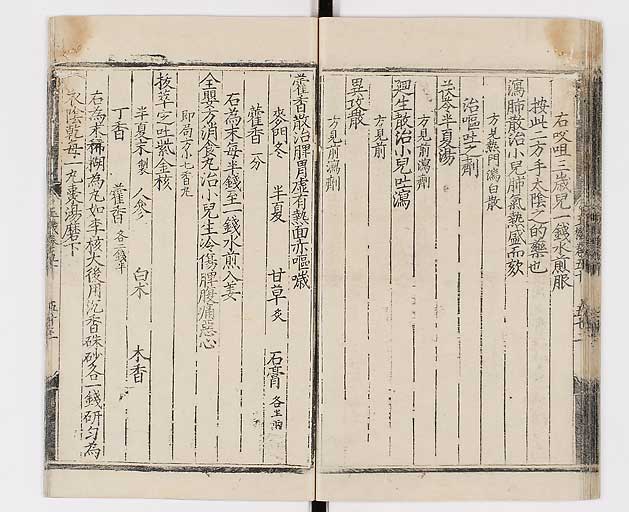 右㕮咀三歲兒一錢水煎服
按此二方手太陰之的藥也
瀉肺散治小兒肺氣熱盛而欬
方見熱門瀉白散
治嘔吐之劑
茯苓半夏湯
方見前瀉劑
廻生散治小兒吐瀉
方見前
異攻散
方見前瀉劑
藿香散治脾胃虛有熱面赤嘔噦
麥門冬 半夏 甘草炙 石膏各五兩
藿香一分
右為末每半錢至一錢水煎入姜
全嬰方消食丸治小兒生冷傷脾腹痛惡心
即局方小七香丸
核草定吐紫金核
半夏末製 人參 白朮 木香
丁香 藿香各二錢半
右為末稀糊為丸如李核大後用沉香硃砂各一錢研勻為
衣陰乾每一丸棗湯磨下